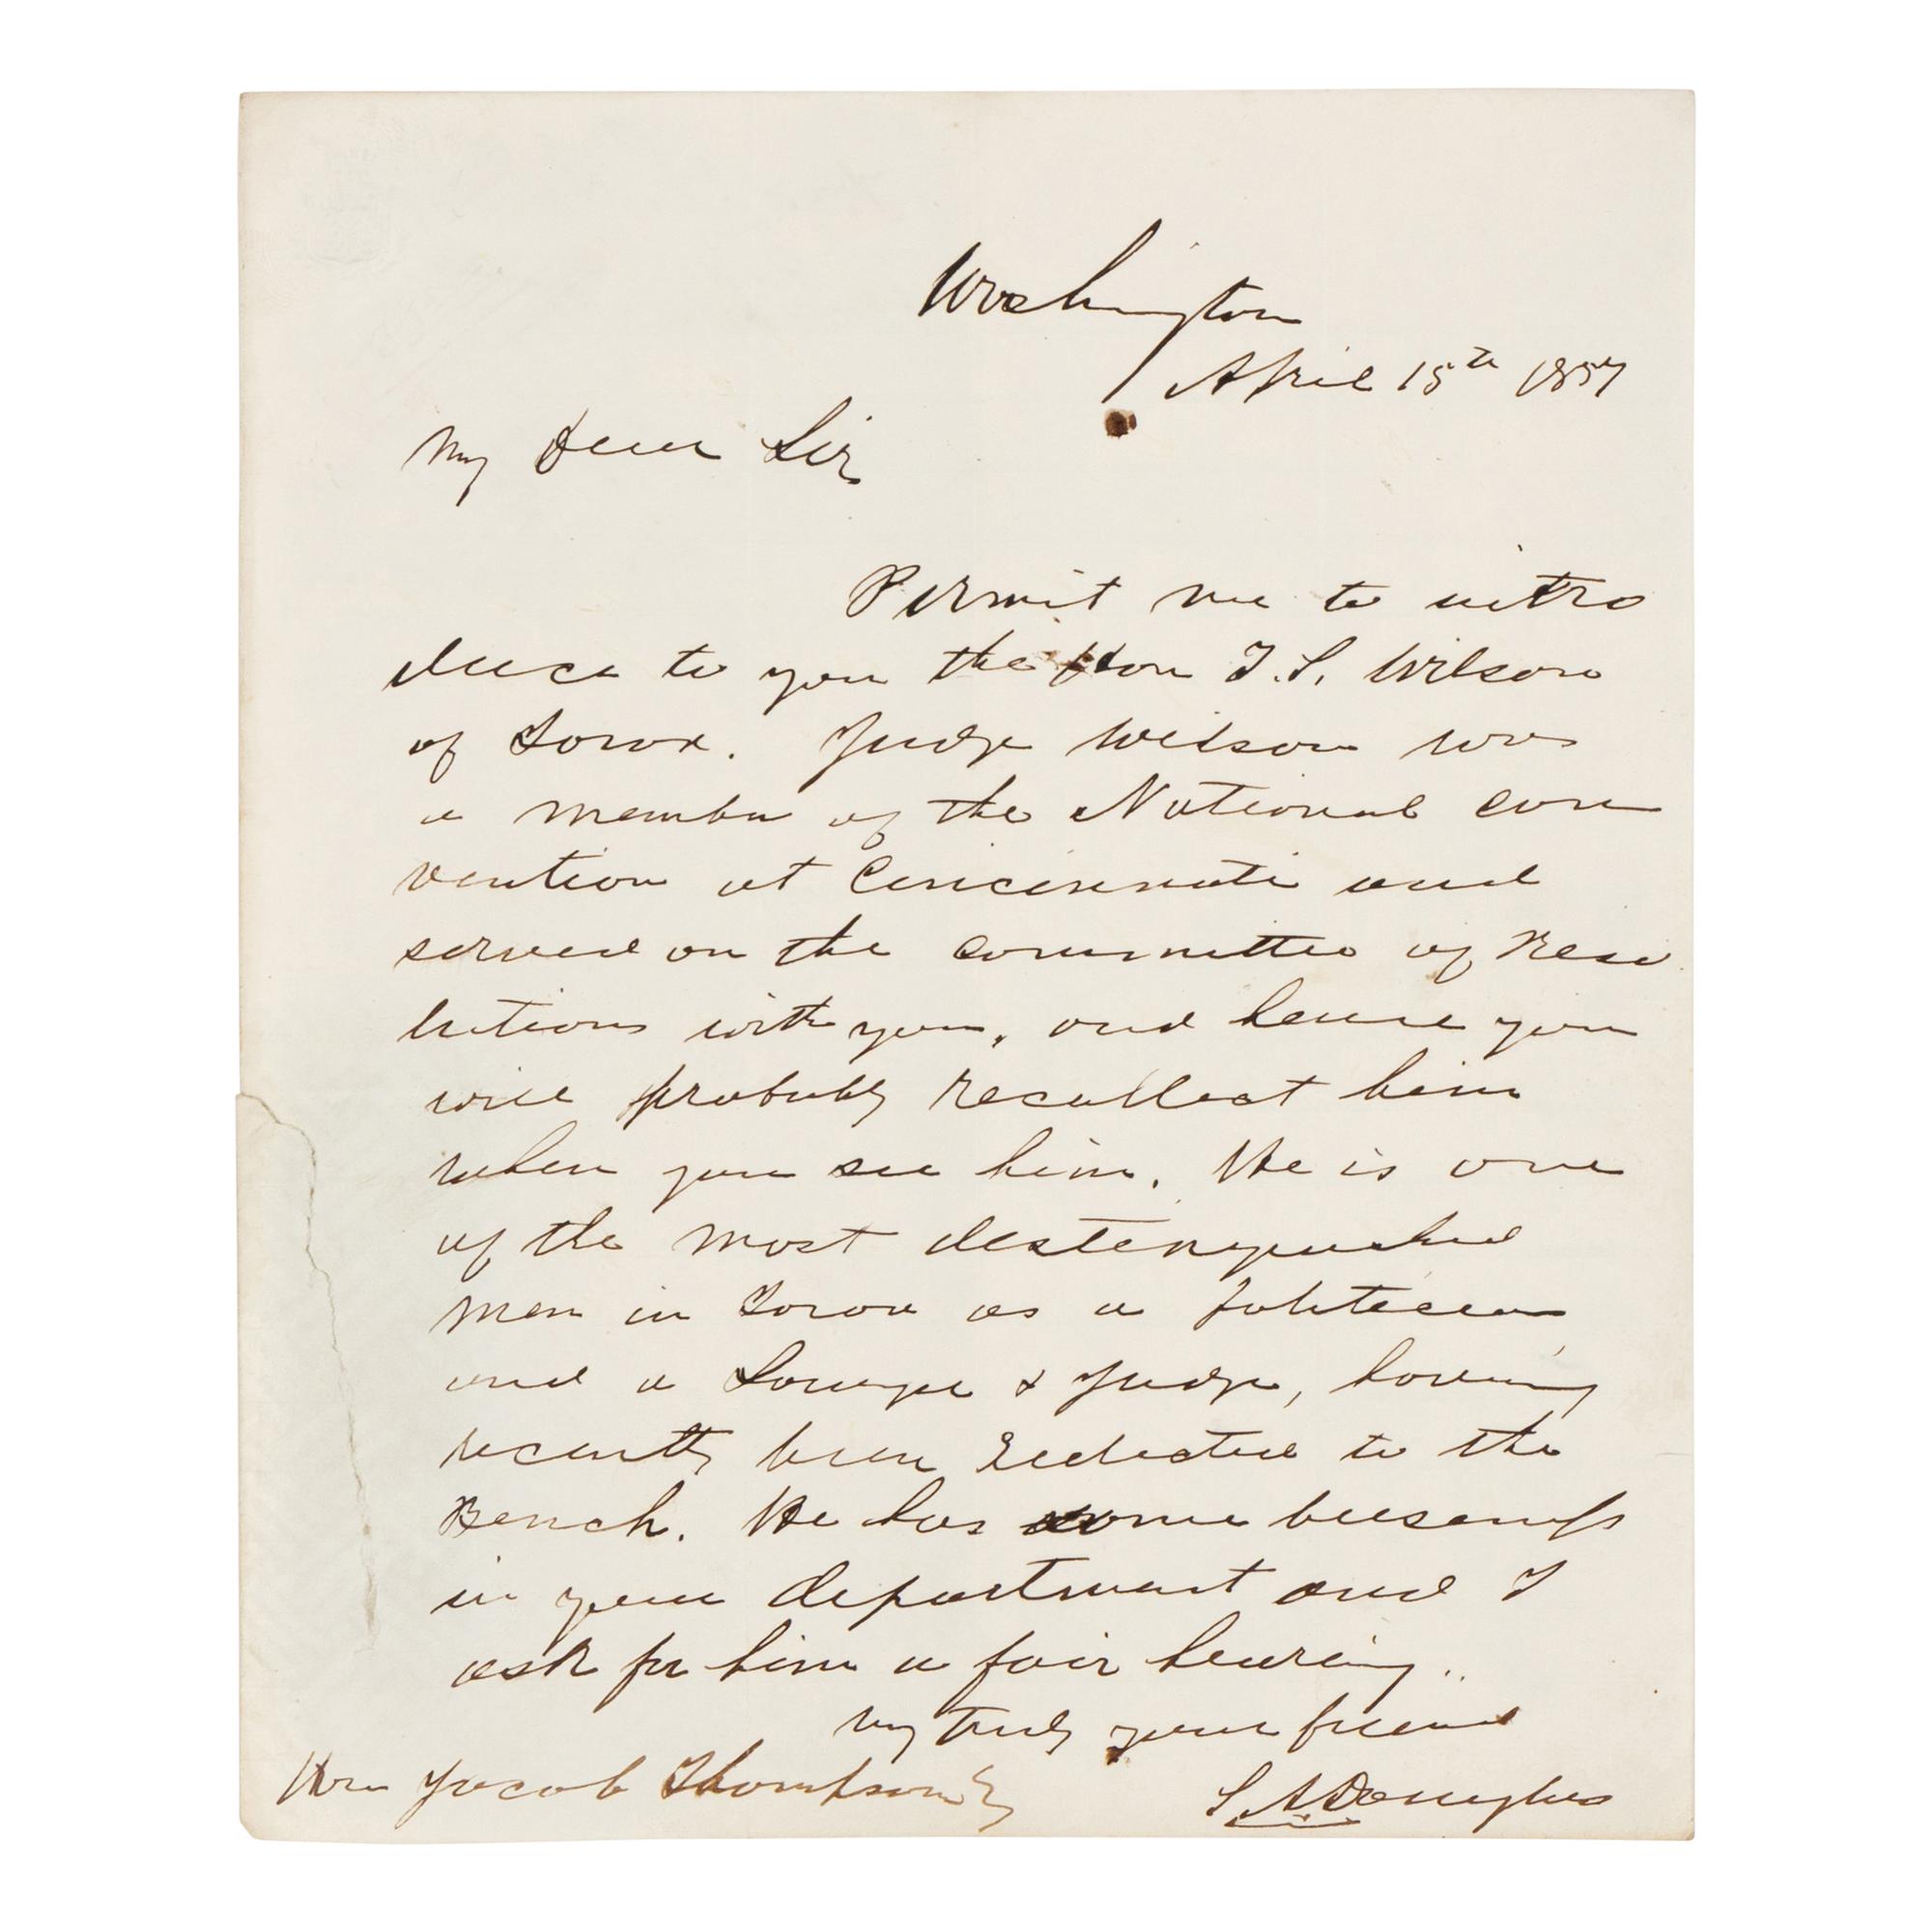 Washington
April 15th 1857
My Dear Sir
Permit me to intro
duce to you the Hon T.S. Wilson
of Iowa. Judge Wilson was
a member of the National Con
vention at Cincinnati and
served on the Committee of Reso
lutions with you, and hence you
will probably recollect him
when you see him. He is one
of the most distinguished
men in Iowa as a politician
and a Lawyer & Judge, having
recently been Reelected to the
Bench. He has some business
in your department and I
ask for him a fair hearing.
Very truly your friend
Hon Jacob Thompson
S. A. Douglas